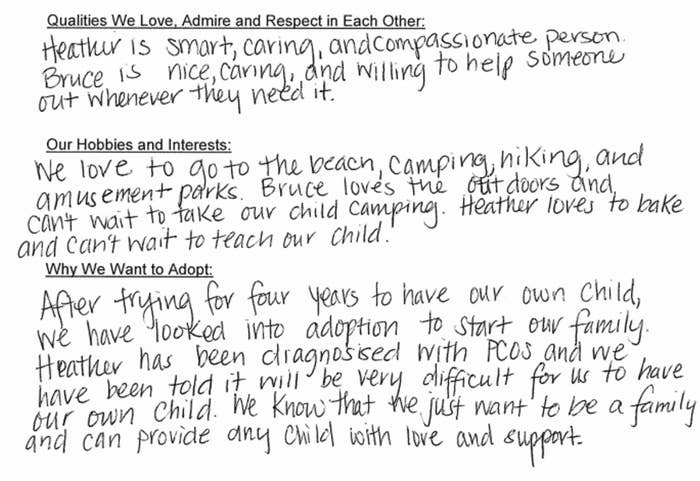 Qualities We Love, Admire and Respect in Each Other:
Heather is smart, caring, and compassionate person.
Bruce is nice, caring, and willing to help someone
out whenever they need it.
Our Hobbies and Interests:
We love to go to the beach, camping, hiking, and
amusement parks. Bruce loves the outdoors and
can't wait to take our child camping. Heather loves to bake
and can't wait to teach our child.
Why We Want to Adopt:
After trying for four years to have our own child,
we have looked into adoption to start our family.
Heather has been diagnosised with PCOS and we
have been told it will be very difficult for us to have
our own child. We know that we just want to be a family
and can provide any child with love and support.